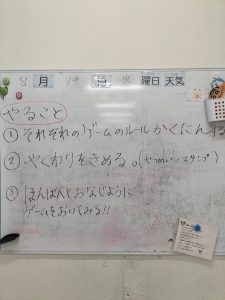 8 月 19 日 曜日 天気
やること
① それぞれのゲームのルールかくにんする
② やくわりをきめる。(せつめい・スタンプ)
③ ほんばんとおなじように
ゲームをおいてみる!!